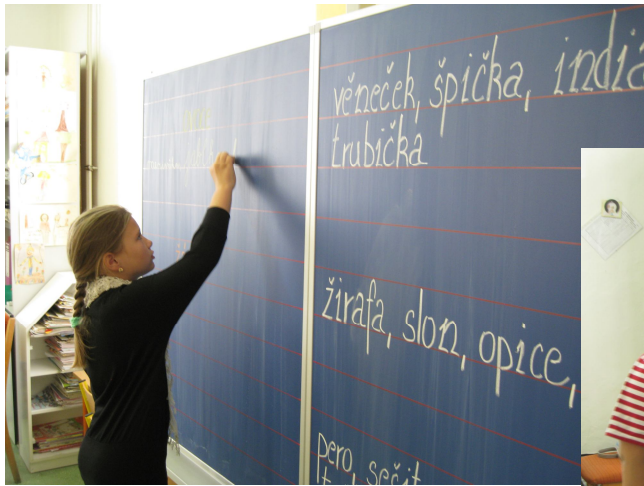 věneček, špička, indiá
trubička
žirafa, slon, opice,
pero, sešit